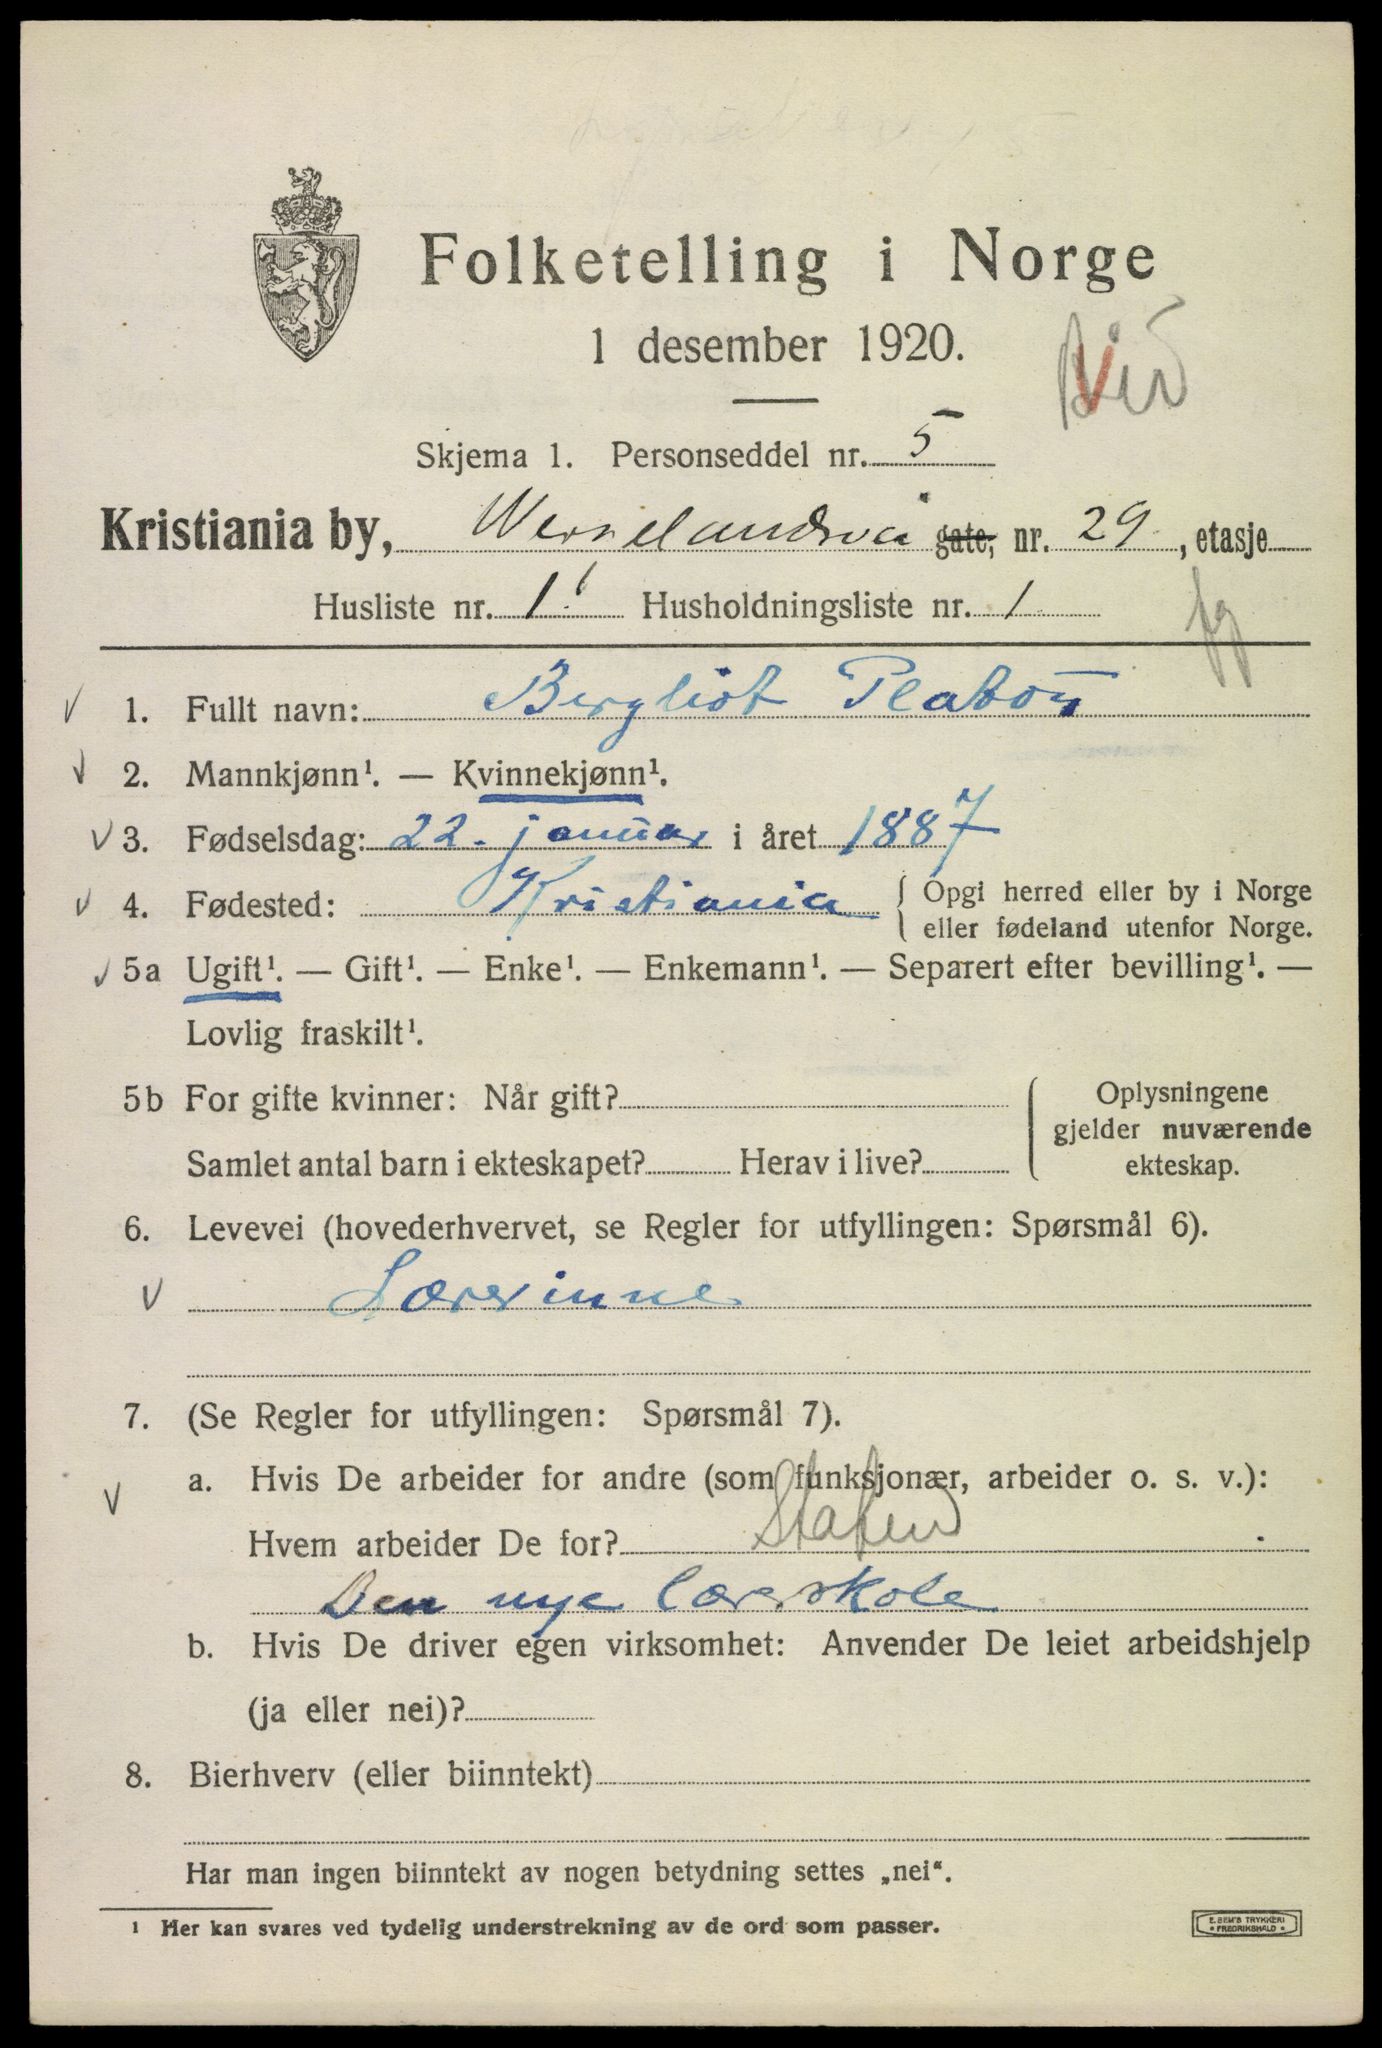 Folketelling i Norge
1 desember 1920.
Skjema 1. Personseddel nr. 5
Kristiania by, Wergelandsvei gate, nr. 29, etasje
Husliste nr. 1 Husholdningsliste nr. 1
1. Fullt navn: Bergliot Platou
2. Mannkjønn¹. — Kvinnekjønn¹.
3. Fødselsdag: 22. januar i året 1887
4. Fødested: Kristiania { Opgi herred eller by i Norge
eller fødeland utenfor Norge.
5a Ugift¹. — Gift¹. — Enke¹. — Enkemann¹. — Separert efter bevilling¹. —
Lovlig fraskilt¹.
5b For gifte kvinner: Når gift? { Oplysningene
gjelder nuværende
Samlet antal barn i ekteskapet? Herav i live? ekteskap.
6. Levevei (hovederhvervet, se Regler for utfyllingen: Spørsmål 6).
Lærerinne
7. (Se Regler for utfyllingen: Spørsmål 7).
a. Hvis De arbeider for andre (som funksjonær, arbeider o. s. v.):
Hvem arbeider De for? Staten
Den nye lærerskole
b. Hvis De driver egen virksomhet: Anvender De leiet arbeidshjelp
(ja eller nei)?
8. Bierhverv (eller biinntekt)
Har man ingen biinntekt av nogen betydning settes „nei“.
¹ Her kan svares ved tydelig understrekning av de ord som passer.
E. SEM'S TRYKKERI
FREDRIKSHALD